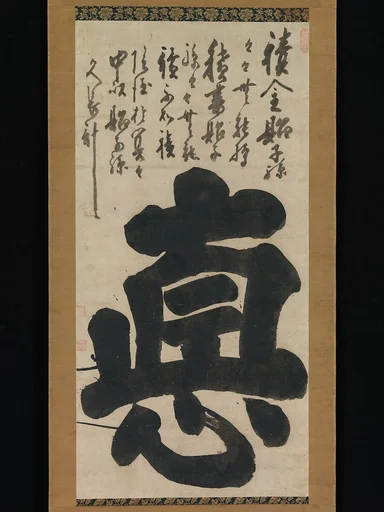 積金貽子孫
々々無能守
積書貽子
孫々々無能
讀不如積
陰徳於冥々
中以貽子孫
久長計
悳